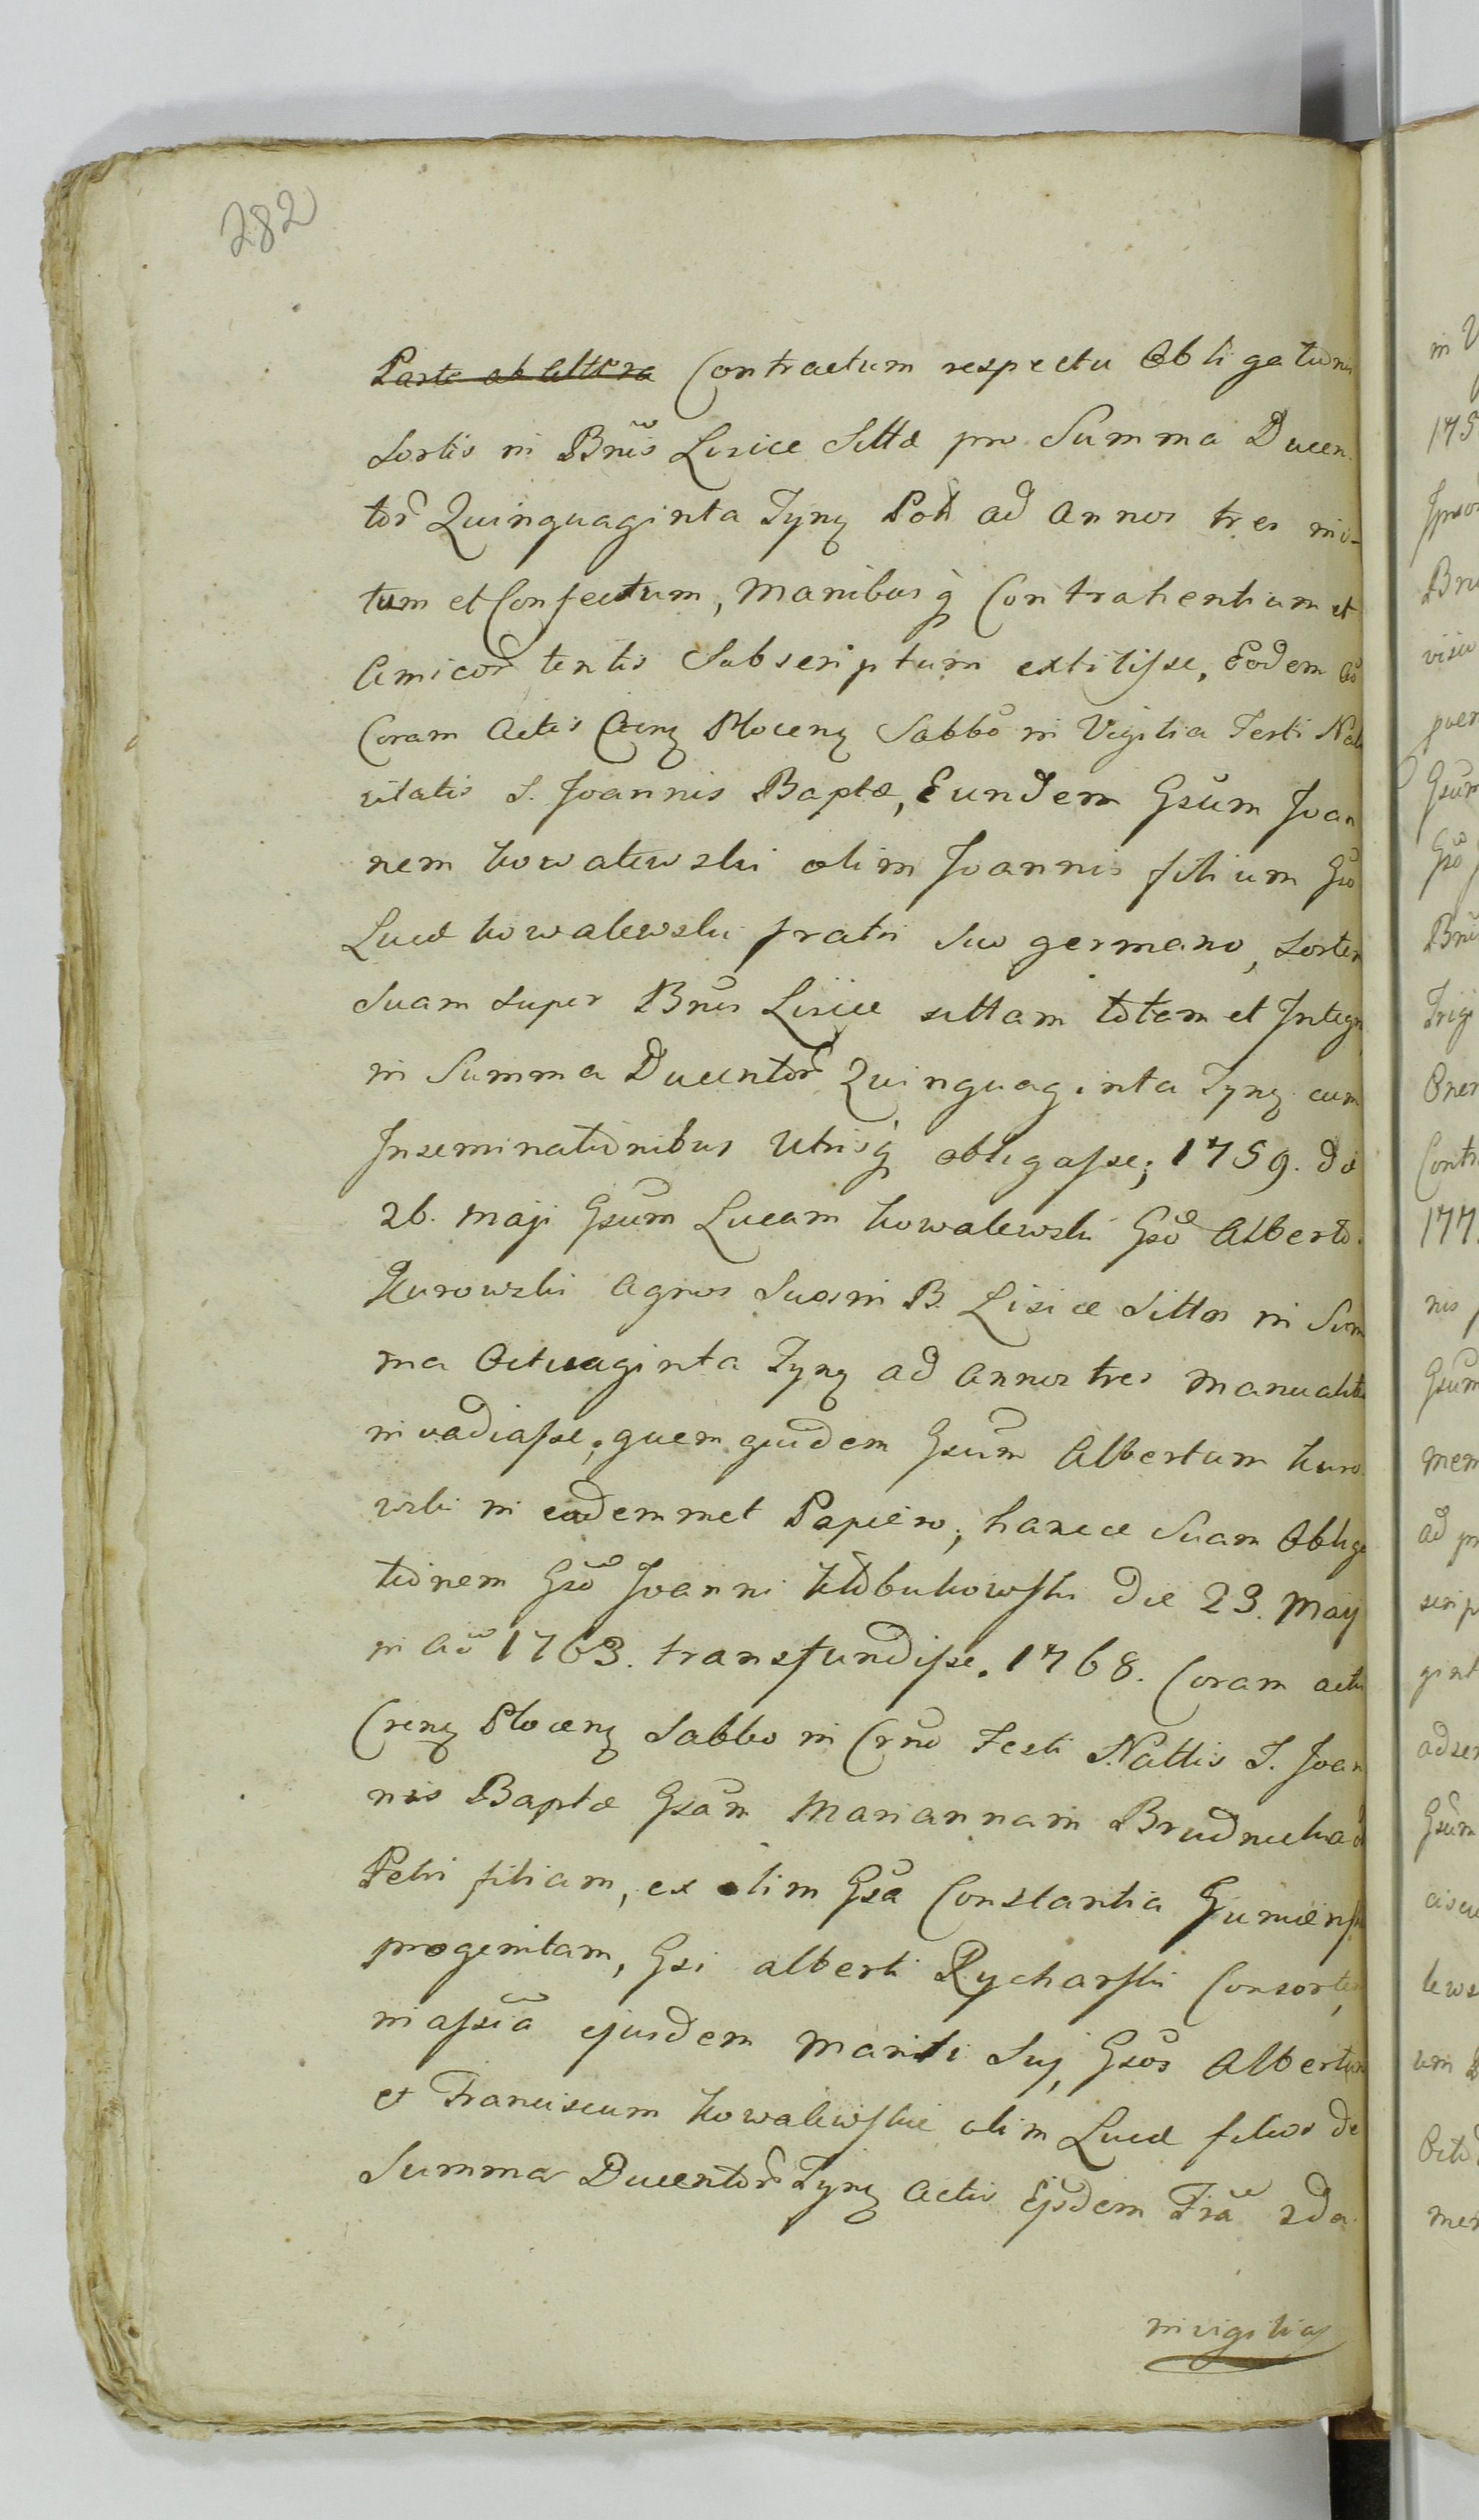 282
Parte ab altera Contractum respectu Obligationis
Sortis in Bnis Lisice Sittæ pro Summa Ducen-
tor Quinquaginta Tynꝫ Pol ad Annos tres ini-
tum et Confectum, Manibusq Contrahentium et
Amicor tentis Subscriptum extitisse, Eodem Ao
Coram Actis Crenꝫ Plocenꝫ Sabbo in Vigilia Festi Nati
vitatis S. Joannis Baptæ, Eundem Gsum Joan
nem Kowalewski olim Joannis filium Gso
Lucæ Kowalewski fratri suo germano, Sortem
Suam super Bnis Lisice sittam totam et Integr
in Summa Ducentor Quinquaginta Tynꝫ cum
Inseminationibus Utrisq obligasse; 1759. die
26. Maji Gsum Lucam Kowalewski Gso Alberto
Kurowski Agros Suos in B. Lisice Sittos in Sum
ma Octuaginta Tynꝫ ad Annos tres Manualiter
invadiasse; quem quidem Gsum Albertum Kuro
wski in eodemmet Papiero, hancce Suam Obliga
tionem Gso Joanni Kłobukowski die 23. Maij
in Ao 1763. transfundisse. 1768. Coram actis
Crenꝫ Plocenꝫ Sabbo in Crno Festi Nattis S. Joan
nis Baptæ Gsam Mariannam Brudnicka
Petri filiam, ex olim Gsa Constantia
progenitam, Gsi Alberti Rycharski Consortem
in assia ejusdem Mariti Suj, Gsos Albertum
et Franciscum Kowalewskie olim Lucæ filios de
Summa Ducentor Tynꝫ Actis Ejsdem Fra 2da
in vigilia
in V
175
Bni
visu
Gsum
Gso
Bni
Trigi
Oner
Contr
177
nis
Gsum
mem
ad pr
scrip
gint
adser
Gsum
lews
um
Octo
men